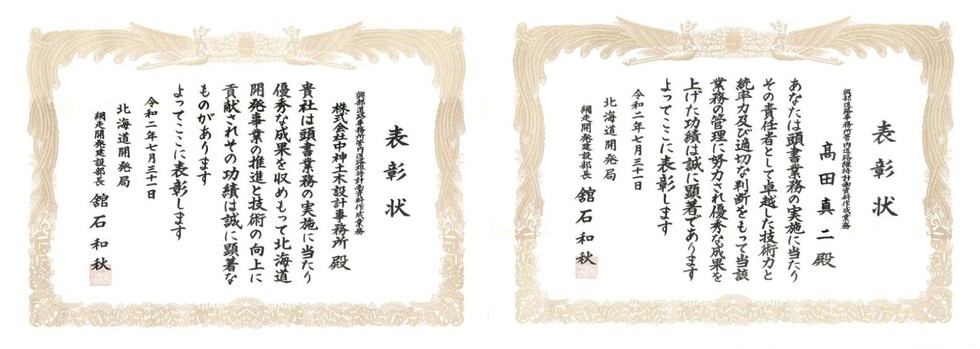 表彰状
興部道路事務所管内道路維持計画資料作成業務
株式会社中神土木設計事務所 殿
貴社は頭書業務の実施に当たり
優秀な成果を収めもって北海道
開発事業の推進と技術の向上に
貢献されその功績は誠に顕著な
ものがあります
よってここに表彰します
令和二年七月三十一日
北海道開発局
網走開発建設部長 舘石和秋
表彰状
興部道路事務所管内道路維持計画資料作成業務
髙田真二殿
あなたは頭書業務の実施に当たり
その責任者として卓越した技術力と
統率力及び適切な判断をもって当該
業務の管理に努力され優秀な成果を
上げた功績は誠に顕著であります
よってここに表彰します
令和二年七月三十一日
北海道開発局
網走開発建設部長 舘石和秋